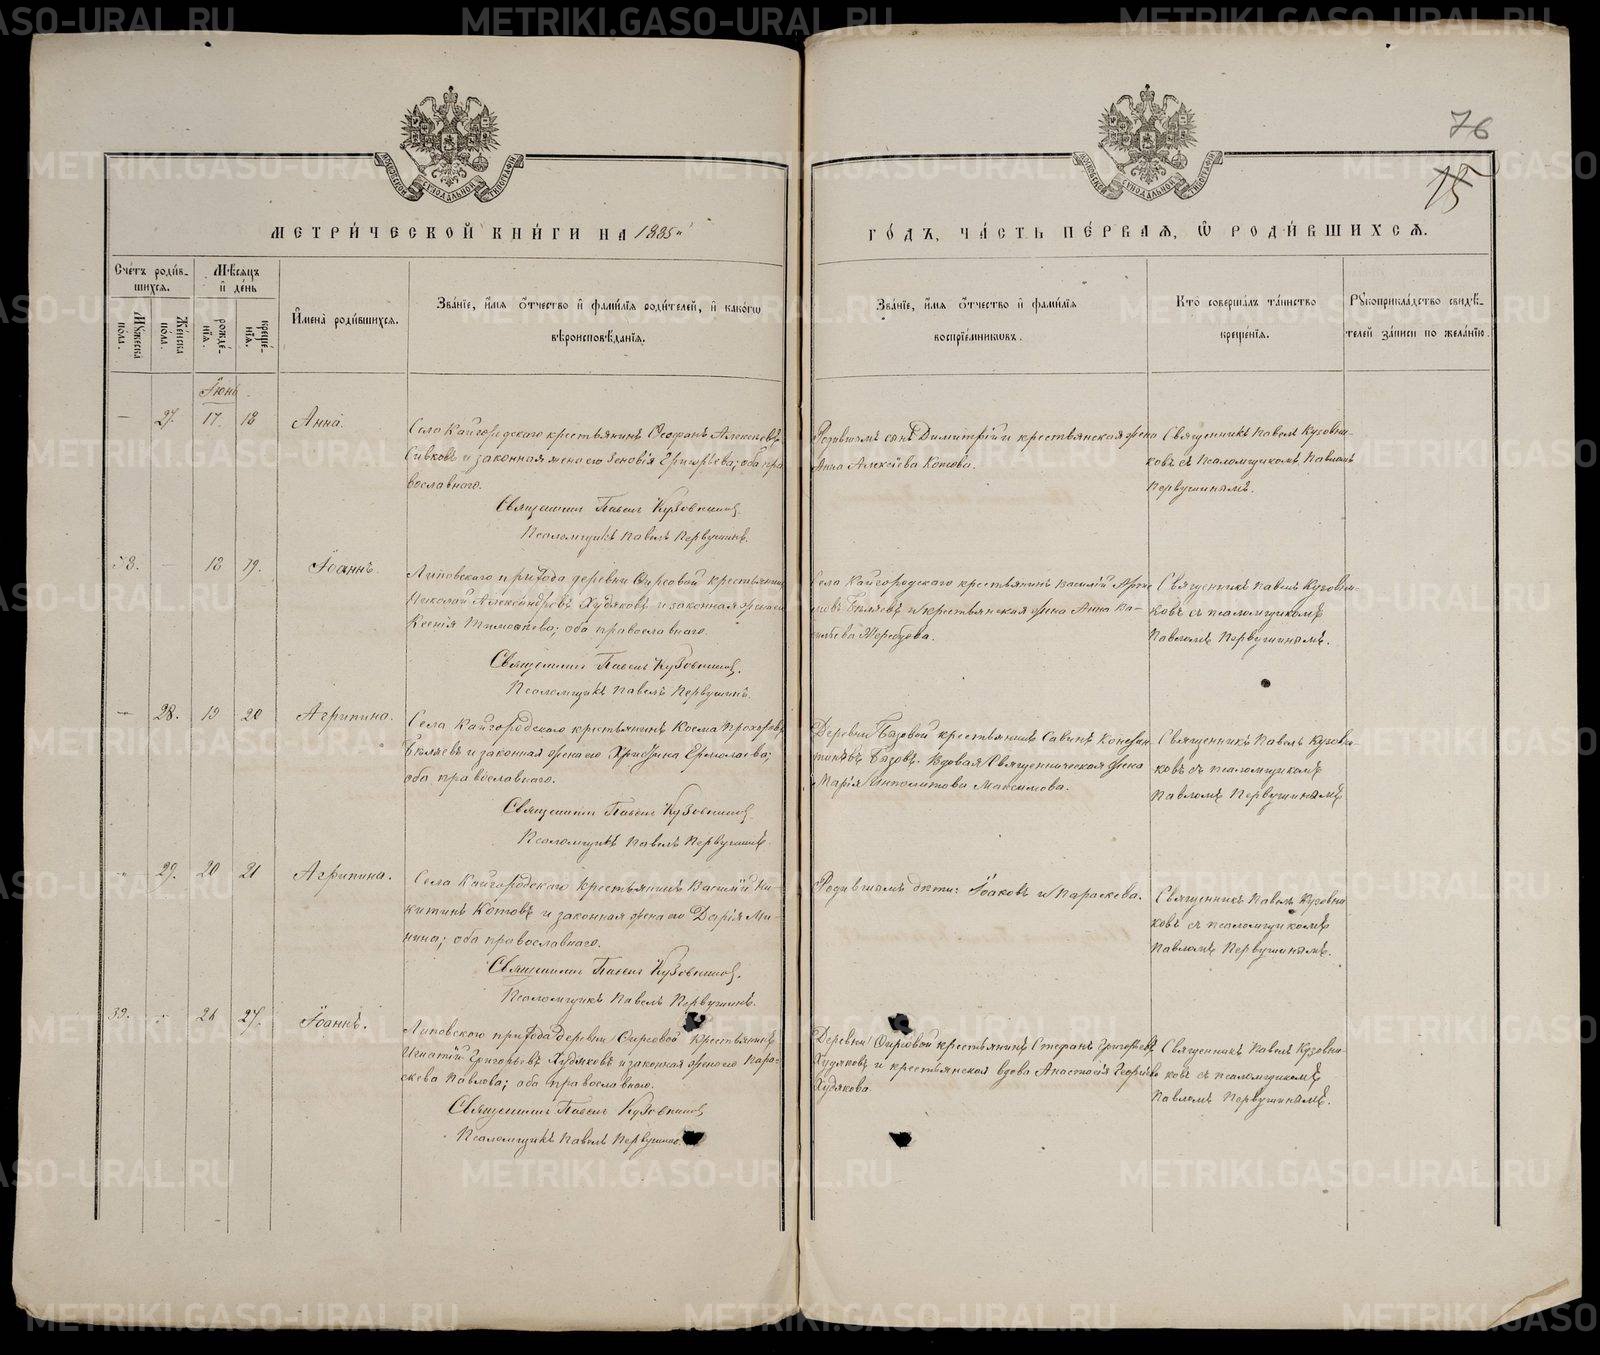 METRIKI.GASO-URAL.RU
76
15
МЕТРИ́ЧЕСКОЙ КНИ́ГИ НА 1885 й
ГО́ДЪ, ЧА́СТЬ ПЕ́РВАЯ, Ѽ РОДИ́ВШИХСЯ.
Счетъ роди́вшихся.
Мꙋжеска пола.
Же́нска по́ла.
Мѣсяцъ и де́нь
рожде́нїя.
креще́нїя.
И҆мена̀ роди́вшихся.
Зва́нїе, и҆́мя ѻ҆́тчество и҆ фами́лїѧ роди́телей, и҆ како́гѡ
вѣроисповѣ́данїѧ.
Зва́нїе, и҆́мя ѻ҆́тчество и҆ фами́лїѧ
воспрїе́мникѡвъ.
Кто̀ соверша́лъ та́инство
креще́нїѧ.
Рꙋкоприкла́дство свидѣ́-
телей за́писи по жела́нїю.
Іюнь
— 27. 17. 18 Анна.
Села Кайгородскаго крестьянинъ Ѳеофанъ Алексѣевъ
Сивковъ и законная жена его Зеновія Григорьева; оба пра
вославнаго.
Священникъ Павелъ Кузовниковъ.
Псаломщикъ Павелъ Первушинъ.
Родившихъ сынъ Димитрій и крестьянская жена
Анна Алексіева Котова.
Священникъ Павелъ Кузовни-
ковъ съ псаломщикомъ Павломъ
Первушинымъ.
38. — 18 19. Іоаннъ.
Липовскаго прихода деревни Фирсовой крестьянинъ
Николай Александровъ Худяковъ и законная жена его
Ксенія Тимоѳеева; оба православнаго.
Священникъ Павелъ Кузовниковъ.
Псаломщикъ Павелъ Первушинъ.
Села Кайгородскаго крестьянинъ Василій
Бѣляевъ и крестьянская жена Анна Ва-
сильева
Священникъ Павелъ Кузовни-
ковъ съ псаломщикомъ
Павломъ Первушинымъ.
— 28. 19 20 Агрипина.
Села Кайгородскаго крестьянинъ Косма Прохоровъ
Бѣляевъ и законная жена его Христина Ермолаева;
оба православнаго.
Священникъ Павелъ Кузовниковъ.
Псаломщикъ Павелъ Первушинъ.
Деревни Бызовой крестьянинъ Савинъ Констан
тиновъ Бызовъ. Вдовая Священническая жена
Марія Ипполитова Максимова.
Священникъ Павелъ Кузовни-
ковъ съ псаломщикомъ
Павломъ Первушинымъ
— 29. 20 21 Агрипина.
Села Кайгородскаго крестьянинъ Василій Ни-
китинъ Котовъ и законная жена его Дарія Ми-
нина; оба православнаго.
Священникъ Павелъ Кузовниковъ.
Псаломщикъ Павелъ Первушинъ.
Родившихъ дѣти: Іоаковъ и Параскева.
Священникъ Павелъ Кузовни
ковъ съ псаломщикомъ
Павломъ Первушинымъ.
39. — 26 27. Іоаннъ.
Липовскаго прихода деревни Фирсовой крестьянинъ
Игнатій Григорьевъ Худяковъ и законная жена его Пара-
скева Павлова; оба православнаго.
Священникъ Павелъ Кузовниковъ
Псаломщикъ Павелъ Первушинъ.
Деревни Фирсовой крестьянинъ Стефанъ Григорьевъ
Худяковъ и крестьянская вдова Анастасія Георгіева
Худякова.
Священникъ Павелъ Кузовни-
ковъ съ псаломщикомъ
Павломъ Первушинымъ.